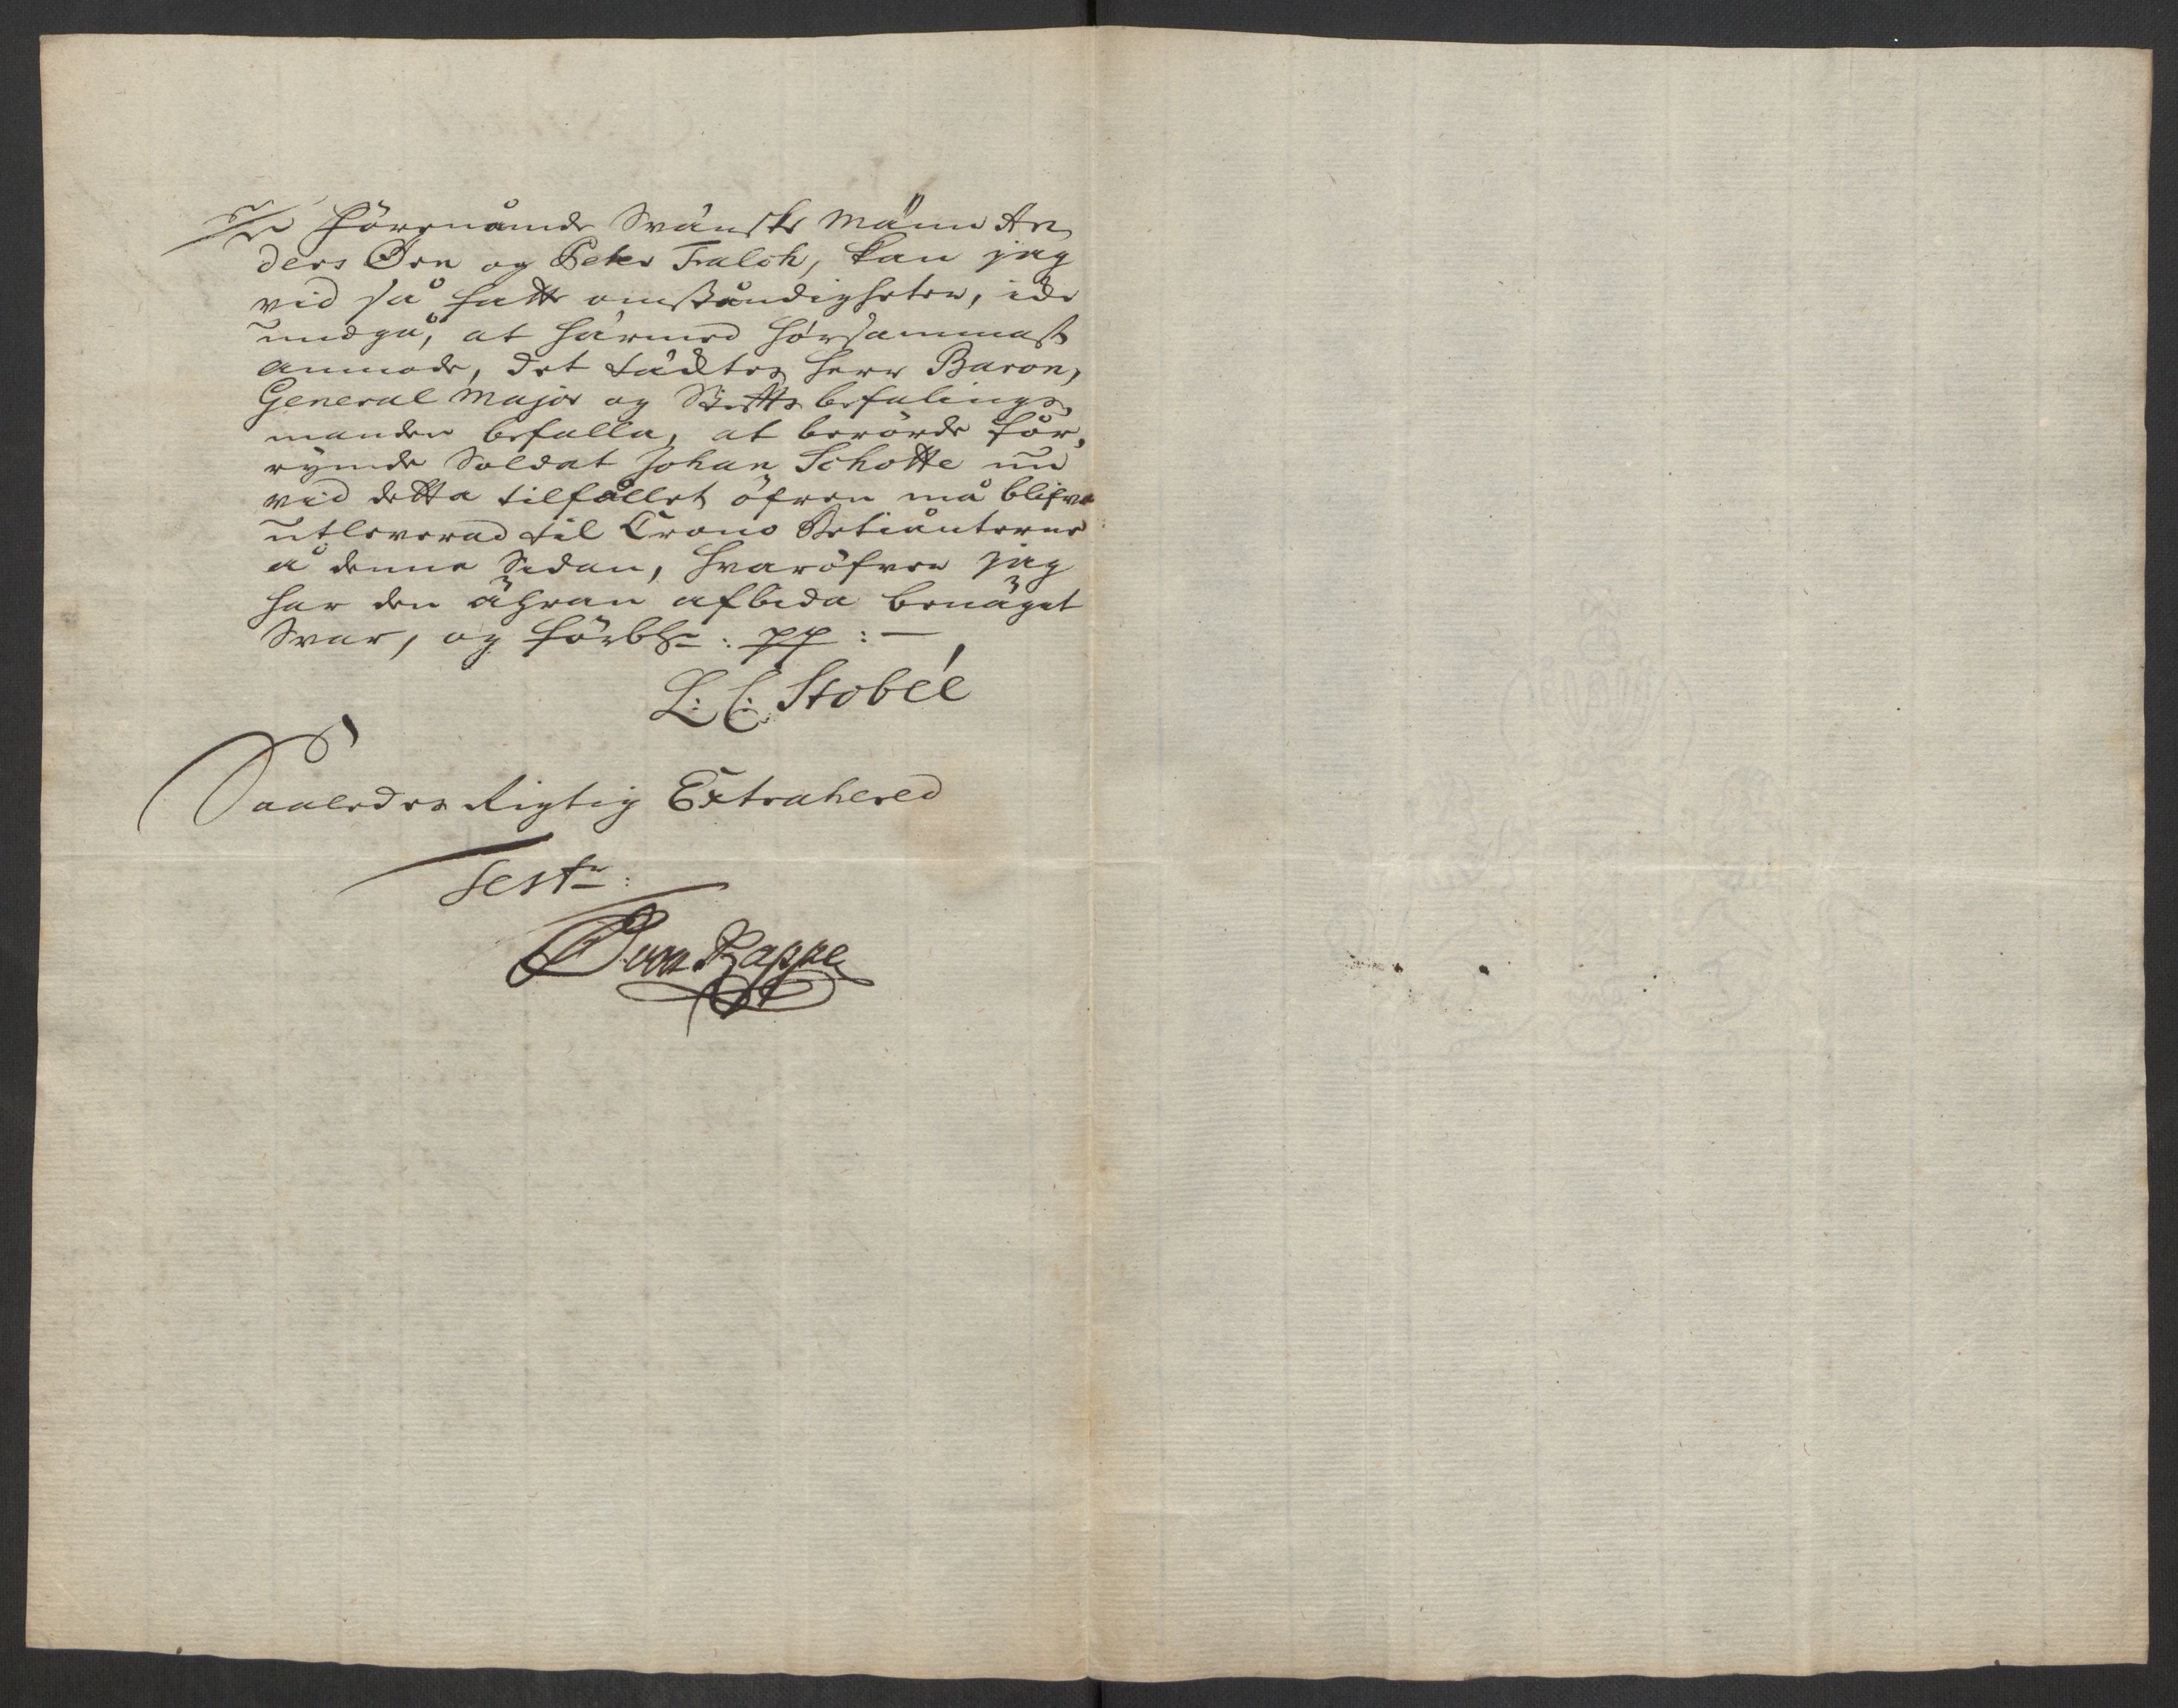 förenämde Svänske Männ An
ders Örn og Peter Falch, kan jag
vid så fatte omständigheter, icke
undgå, at härmed hörsammast
anmode, det täcktes Herr Baron,
General Major og Stiftsbefalings
manden befalla, at berörde för,
rymde Soldat Johan Schotte nu
vid detta tilfället öfven må blifva
utleverad til Crono Betiänterne
å denne Sidan, hvaröfver jag
har den ähran afbida benäget
Svar, og förbl: pp: —
L: C: Stobée
Saaledes Rigtig Extrahered
Test:
von Rappe